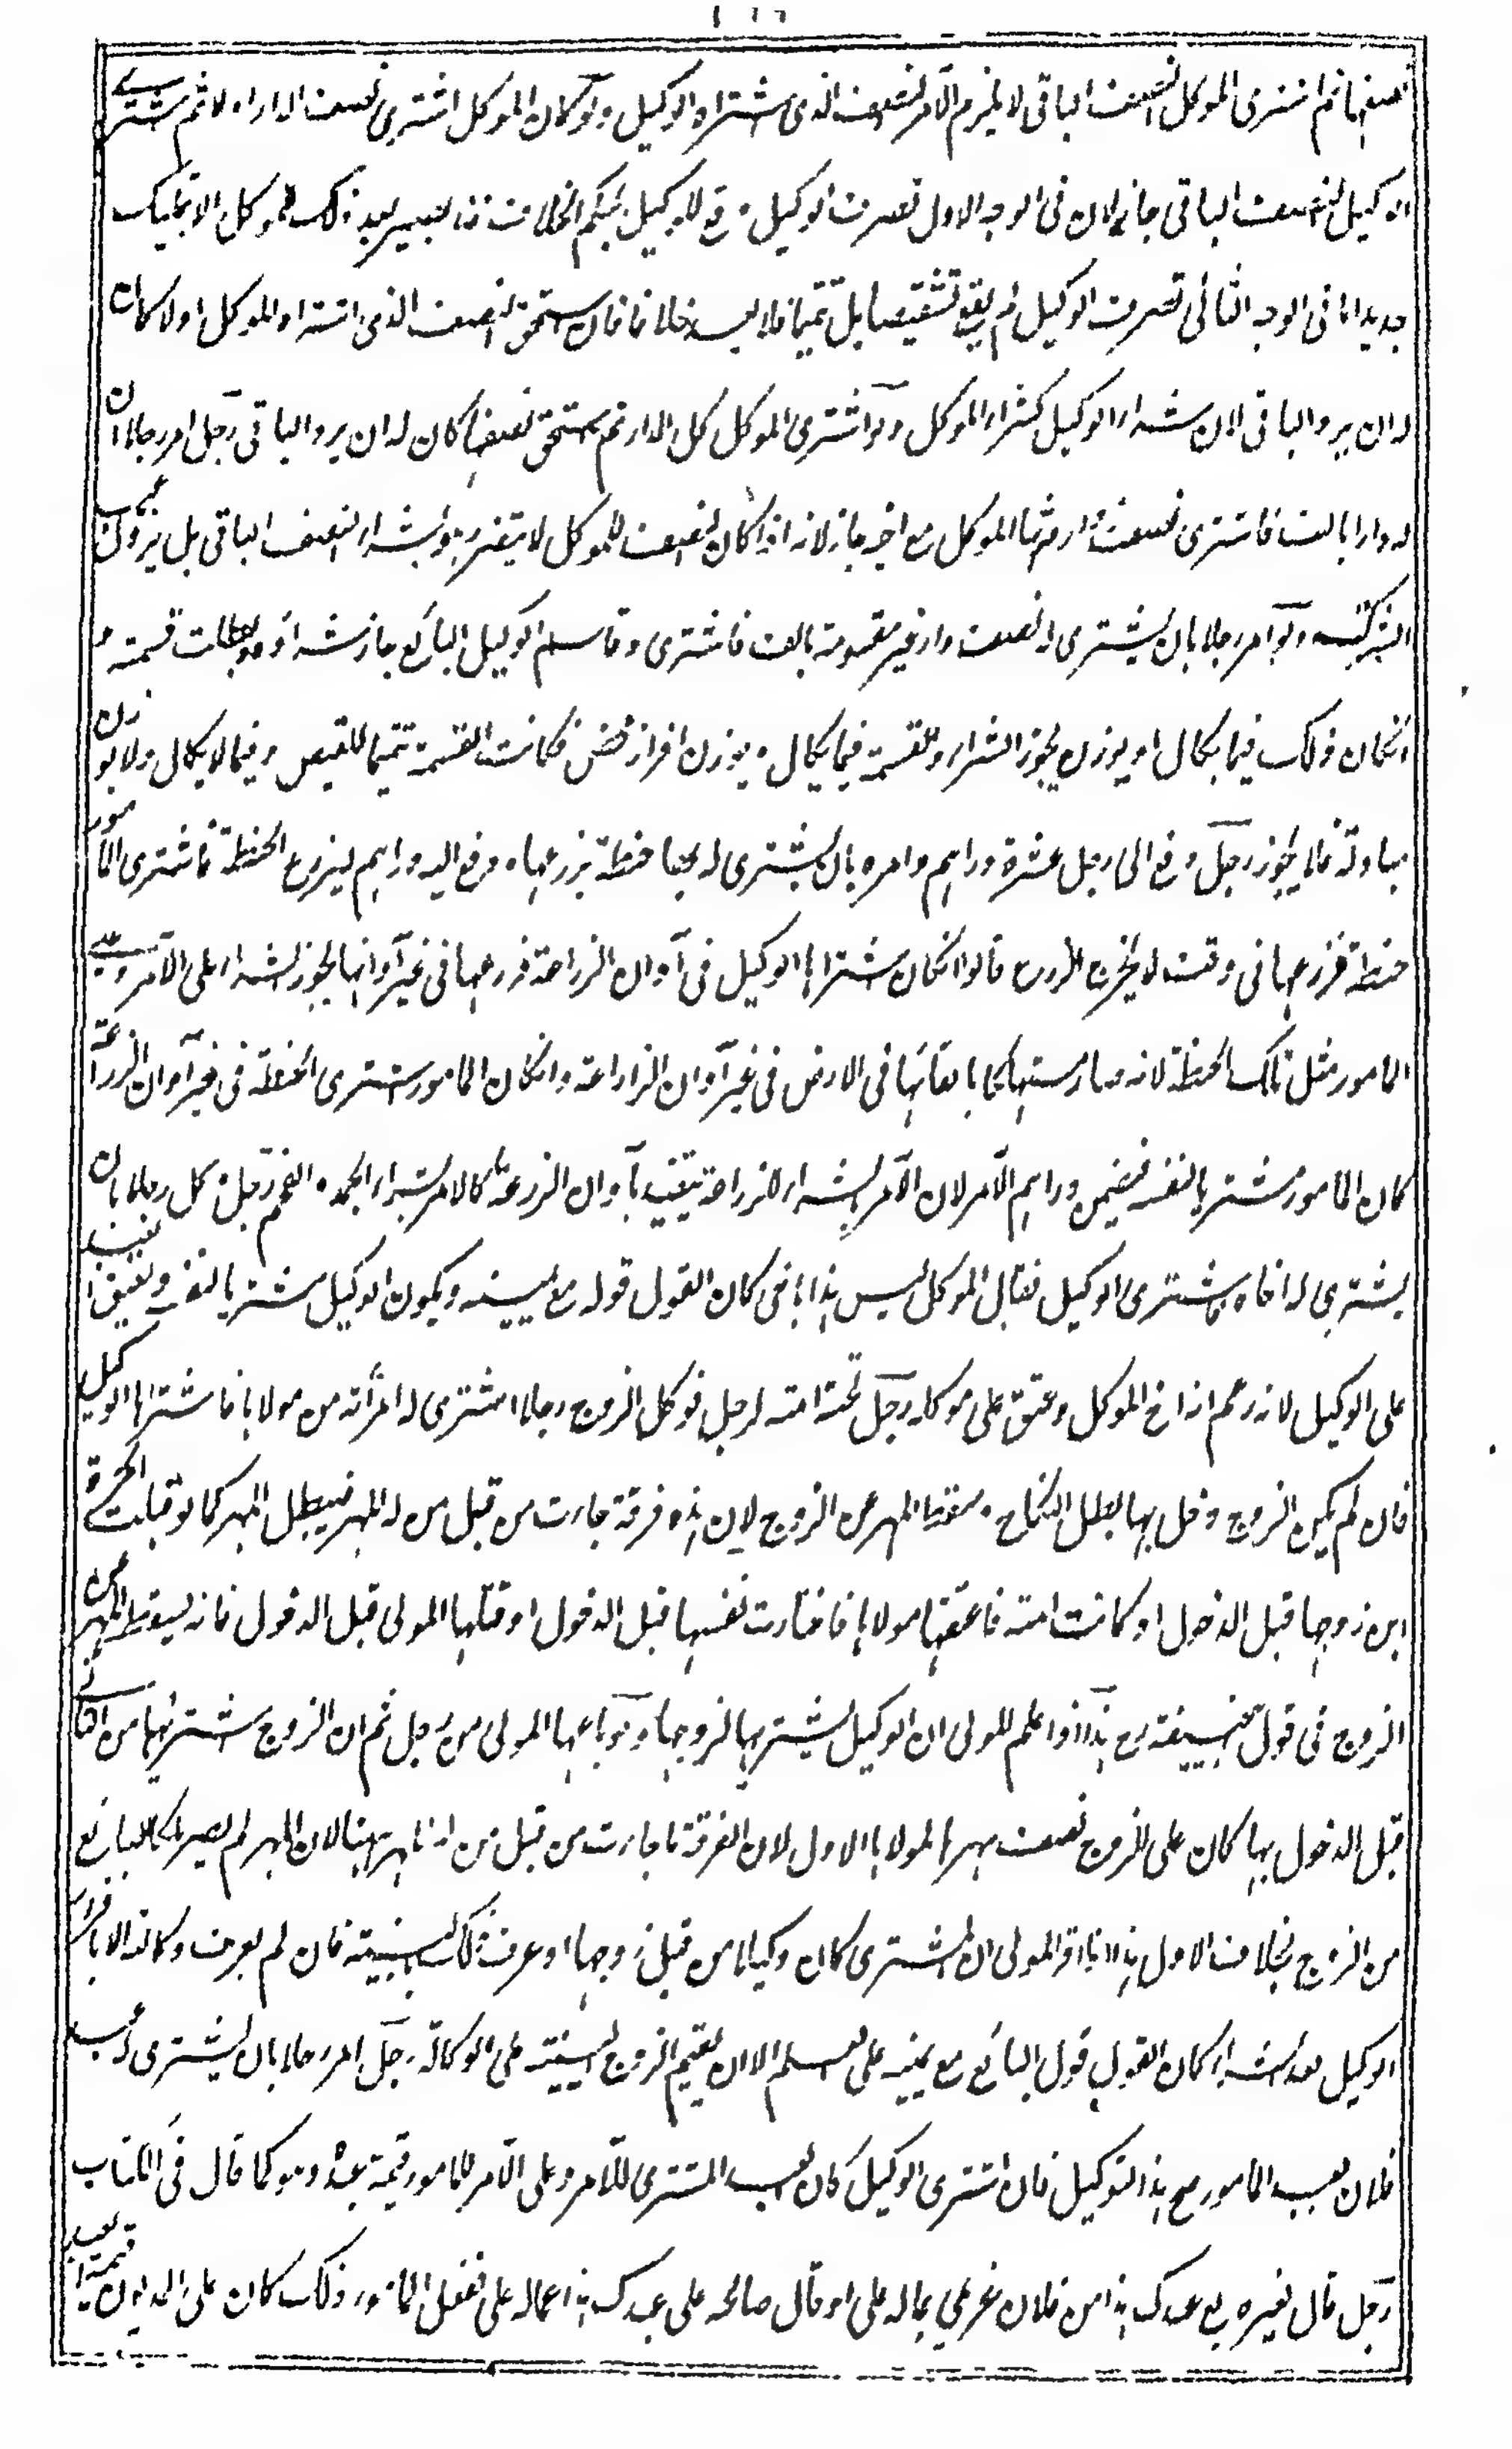 نصفها ثم اشترى الموكل النصف الباقي لا يلزم الآمر النصف الذي اشتراه الوكيل ولو كان الموكل اشترى نصف الدار اولا ثم اشترى
الوكيل النصف الباقي جاز لان في الوجه الاول تصرف الوكيل وقع للوكيل بحكم الخلاف فلا يصير بعد ذلك للموكل الا بتمليك
جديد اما في الوجه الثاني تصرف الوكيل لم يقع تشقيصا بل تتميما فلا يعد خلافا فان استحق النصف الذي اشتراه الموكل اولا كان
له ان يرد الباقي لان شراء الوكيل كشراء الموكل ولو اشترى الموكل كل الدار ثم استحق نصفها كان له ان يرد الباقي رجل امر رجلا ان
له دارا بالف فاشترى نصف دار ورثها الموكل مع اخيه جاز لانه اذا كان النصف للموكل لا يتضرر هو بشراء النصف الباقي بل يزول عيب
الشركة ولو امر رجلا بان يشتري له نصف دار غير مقسومة بالف فاشترى وقاسم الوكيل البائع جاز شراؤه وبطلت قسمته و
ان كان ذلك فيما يكال او يوزن يجوز الشراء والقسمة فيما يكال ويوزن افراز محض فكانت القسمة تتميما للقبض وفيما لا يكال ولا يوزن
مبادلة فلا يجوز رجل دفع الى رجل عشرة دراهم وامره بان يشتري له بها حنطة يزرعها ودفع اليه دراهم ليزرع الحنطة فاشترى المأمور
حنطة فزرعها في وقت لا يخرج الزرع قالوا ان كان اشتراها الوكيل في آوان الزراعة فزرعها في غير آوانها يجوز الشراء على الآمر وعلى
المامور مثل تلك الحنطة لانه صار مستهلكا بالقائها في الارض في غير آوان الزراعة وان كان المامور اشترى الحنطة في غير آوان الزراعة
كان المامور مشتريا لنفسه فيضمن دراهم الآمر لان الآمر بالشراء للزراعة يتقيد بآوان الزراعة كالامر بشراء الجمد والفحم رجل وكل رجلا بان
يشتري له اخاه فاشترى الوكيل فقال الموكل ليس هذا باخي كان القول قوله مع يمينه ويكون الوكيل مشتريا لنفسه ويعتق العبد
على الوكيل لانه زعم انه اخ الموكل وعتق على موكله رجل تحته امة لرجل فوكل الزوج رجلا اشترى له امرأته من مولاها فاشتراها الوكيل
فان لم يكن الزوج دخل بها بطل النكاح وسقط المهر عن الزوج لان هذه فرقة جاءت من قبل من له المهر فيبطل المهر كما لو قبلت الحرة
ابن زوجها قبل الدخول او كانت امة فاعتقها مولاها فاختارت نفسها قبل الدخول او قتلها المولى قبل الدخول فانه يسقط المهر عن
الزوج في قول ابي حنيفة رح هذا اذا علم للمولى ان الوكيل يشتريها لزوجها ولو باعها المولى من رجل ثم ان الزوج اشتريها من الثاني
قبل الدخول بها كان على الزوج نصف مهرها لمولاها الاول لان الفرقة ما جاءت من قبل من له المهر ههنا لان المهر لم يصر ملكا للبائع
من الزوج بخلاف الاول هذا اذا اقر المولى ان المشتري كان وكيلا من قبل زوجها او عرف ذلك ببينة فان لم يعرف وكالته الا باقرار
الوكيل بعد الشراء كان القول قول البائع مع يمينه على العلم الا ان يقيم الزوج البينة على الوكالة رجل امر رجلا بان يشتري له عبد
فلان بعبد المامور صح هذا التوكيل فان اشترى الوكيل كان العبد المشترى للآمر وعلى الآمر للمامور قيمة عبده وهو كما قال في الكتاب
رجل قال لغيره بع عبدك هذا من فلان غريمي بماله علي او قال صالحه على عبدك هذا عماله علي ففعل المامور ذلك كان على المديون قيمة العبد